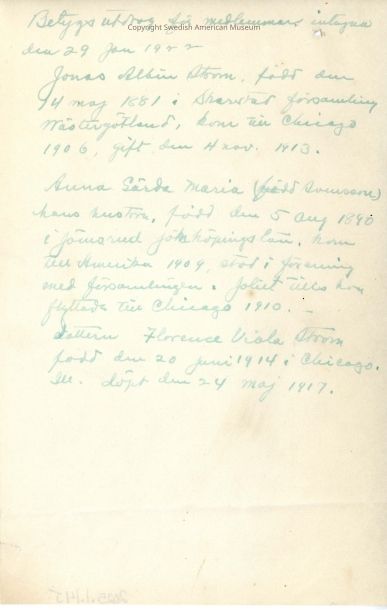 Copyright Swedish American Museum
Betygs utdrag för medlemmar intagna
den 29 Jan 1922
Jonas Albin Strom, född den
14 maj 1881 i Skarstad församling
Wästergötland, kom till Chicago
1906, gift den 4 nov. 1913.
Anna Gärda Maria (född Svensson)
hans hustru, född den 5 aug 1890
i jönköpings län, kom
till Amerika 1909, stod i förening
med församlingen i Joliet tills hon
flyttade till Chicago 1910. –
dottern Florence Viola Strom
född den 20 juni 1914 i Chicago.
Ill. döpt den 24 maj 1917.